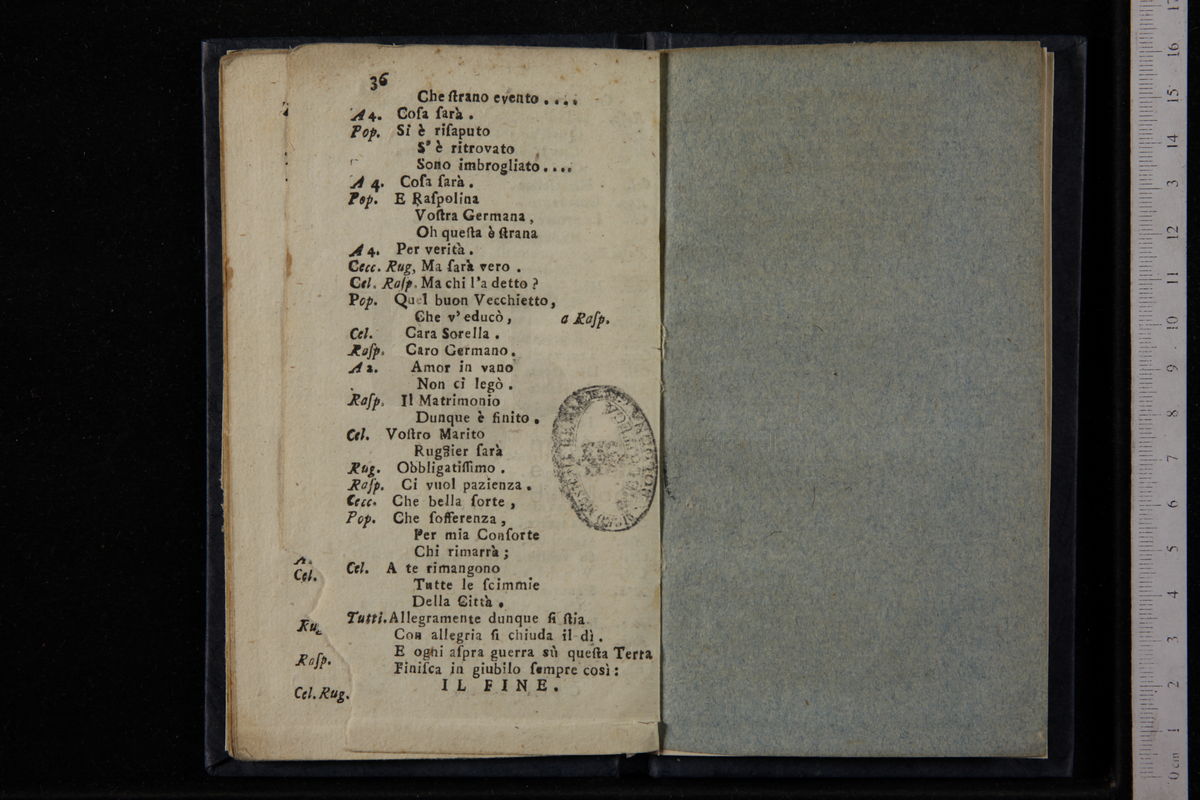 36
Che ſtrano evento . . . .
A 4. Coſa ſarà .
Pop. Si è riſaputo
S' è ritrovato
Sono imbrogliato . . . .
A 4. Coſa ſarà .
Pop. E Raſpolina
Voſtra Germana ,
Oh queſta è ſtrana
A 4. Per verità .
Cecc. Rug, Ma ſarà vero .
Cel. Raſp. Ma chi l'a detto ?
Pop. Quel buon Vecchietto,
Che v' educò , a Raſp.
Cel. Cara Sorella .
Raſp. Caro Germano.
A 2. Amor in vano
Non ci legò .
Raſp. Il Matrimonio
Dunque è finito .
Cel. Voſtro Marito
Ruggier ſarà
Rug. Obbligatiſſimo .
Raſp. Ci vuol pazienza .
Cecc. Che bella ſorte ,
Pop. Che ſofferenza ,
Per mia Conſorte
Chi rimarrà ;
Cel. A te rimangono
Tutte le ſcimmie
Della Città .
Tutti. Allegramente dunque ſi ſtia
Con allegria ſi chiuda il dì .
E ogni aſpra guerra sù queſta Terra
Finiſca in giubilo ſempre così :
IL FINE .
A.
Cel.
Ru
Raſp.
Cel. Rug.
0 cm 1 2 3 4 5 6 7 8 9 10 11 12 3 14 15 16 17